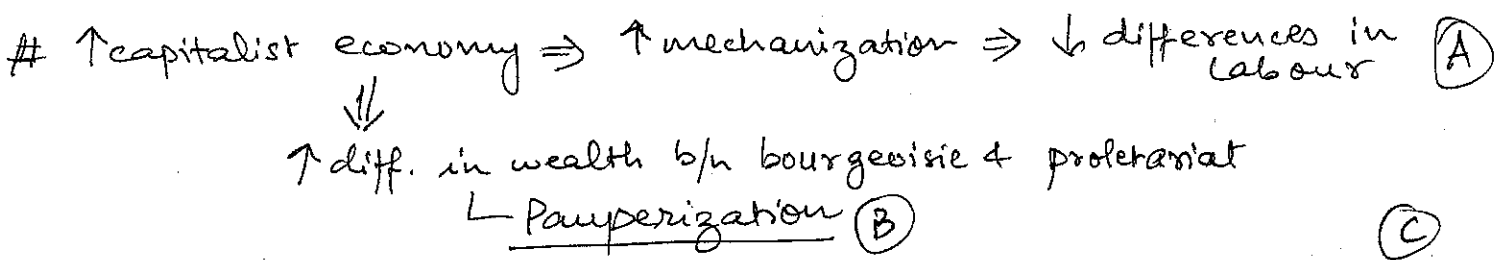 # ↑capitalist economy ⇒ ↑mechanization ⇒ ↓ differences in labour (A)
⇓
↑ diff. in wealth b/n bourgeoisie & proletariat
└ Pauperization (B)
(C)